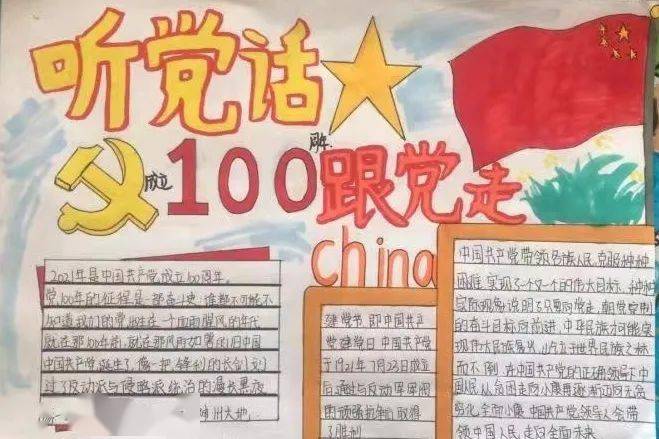 听党话
成立100周年
跟党走
china
2021年是中国共产党成立100周年。
党100年的征程是一部奋斗史,谁都不可能不
知道我们的党出生在一个血雨腥风的年代
就在那100年前,就在那风雨如磐的旧中国
中国共产党诞生了,像一把锋利的长剑划
过了反动派与侵略派统治的漫长黑夜
州大地
建党节,即中国共产
党建党日 中国共产党
于1921年7月23日成立
后通过与反动军军阀
困顽强抗争取得
了胜利
中国共产党带领各族人民,克服种种
困难,实现了一个又一个的伟大目标、种种
实际现象说明了只要向党走,朝党定制
的奋斗目标向前进,中华民族才可能实
现伟大民族复兴,屹立于世界民族之林
而不倒,在中国共产党的正确领导下中
国人民从贫困走向小康再逐渐迈向无贫
穷化全面小康,中国共产党领导人会带
领中国人民走向全面未来